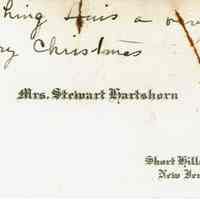 hing Luis a
ry Christmas
Mrs. Stewart Hartshorn
Short Hill
New Jer